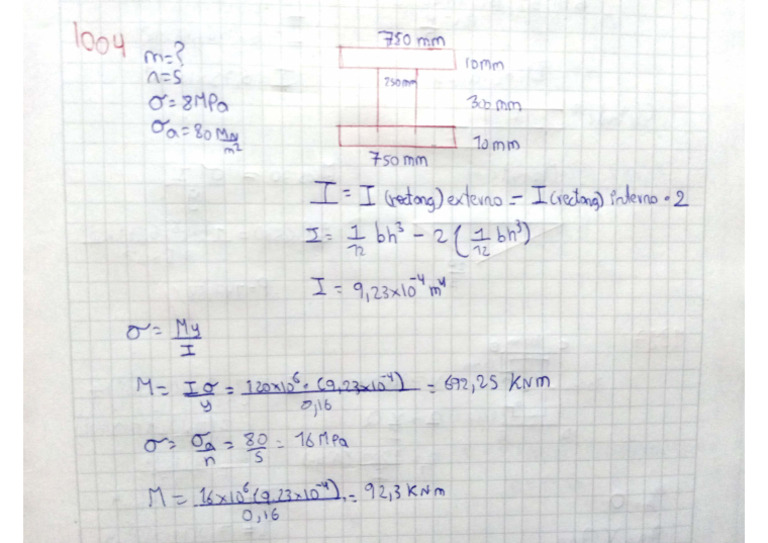 1004
m=?
n=5
σ=8MPa
σa=80 MN/m²
750 mm
10mm
250mm
300 mm
10mm
750 mm
I = I (rectang) externo - I (rectang) interno • 2
I = 1/12 bh³ - 2 (1/12 bh³)
I = 9,23x10⁻⁴ m⁴
σ= My/I
M= Iσ/y = 120x10⁶ • (9,23x10⁻⁴)/0,16 = 692,25 KNm
σ= σa/n = 80/5 = 16 MPa
M = 16x10⁶(9,23x10⁻⁴)/0,16 = 92,3 KNm